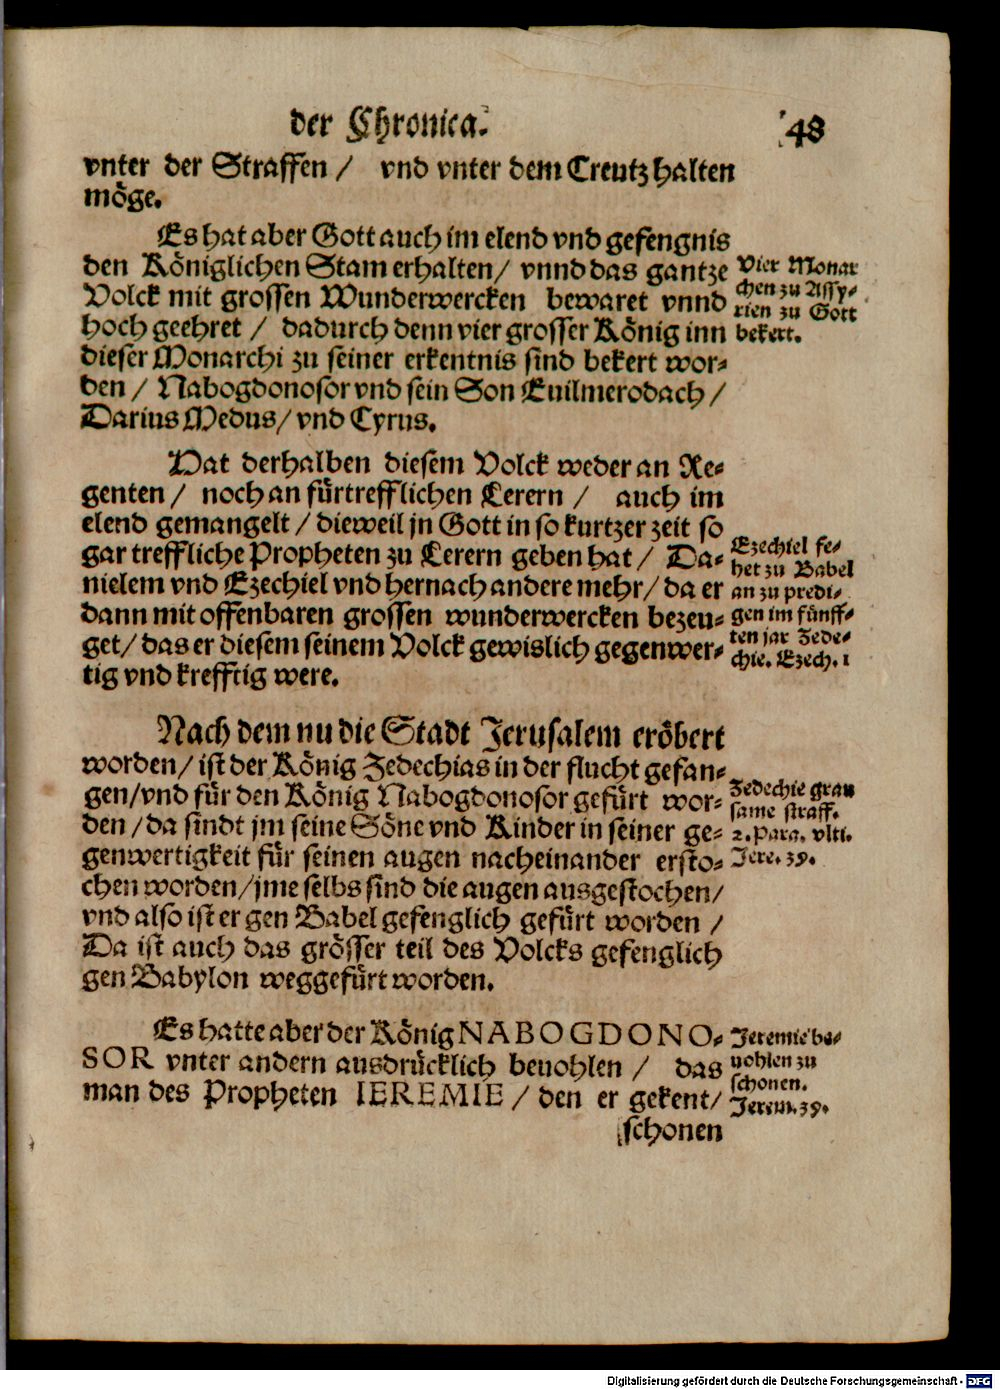 der Chronica. 48
vnter der Straffen / vnd vnter dem Creutz halten
möge.
Es hat aber Gott auch im elend vnd gefengnis
den Königlichen Stam erhalten / vnnd das gantze
Volck mit grossen Wunderwercken bewaret vnnd
hoch geehret / dadurch denn vier grosser König inn
dieser Monarchi zu seiner erkentnis sind bekert wor-
den / Nabogdonosor vnd sein Son Euilmerodach /
Darius Medus / vnd Cyrus.
Vier Monar
chen zu Assy-
rien zu Gott
bekert.
Hat derhalben diesem Volck weder an Re-
genten / noch an fürtrefflichen Lerern / auch im
elend gemangelt / dieweil jn Gott in so kurtzer zeit so
gar treffliche Propheten zu Lerern geben hat / Da-
nielem vnd Ezechiel vnd hernach andere mehr / da er
dann mit offenbaren grossen wunderwercken bezeu-
get / das er diesem seinem Volck gewislich gegenwer-
tig vnd krefftig were.
Ezechiel fe-
het zu Babel
an zu predi-
gen im fünff-
ten jar Zede-
chie. Ezech. 1
Nach dem nu die Stadt Jerusalem eröbert
worden / ist der König Zedechias in der flucht gefan-
gen / vnd für den König Nabogdonosor gefürt wor-
den / da sindt jm seine Söne vnd Kinder in seiner ge-
genwertigkeit für seinen augen nacheinander ersto-
chen worden / jme selbs sind die augen ausgestochen /
vnd also ist er gen Babel gefenglich gefürt worden /
Da ist auch das grösser teil des Volcks gefenglich
gen Babylon weggefürt worden.
Zedechie grau
same straff.
2. Para. vlti.
Jere. 39.
Es hatte aber der König NABOGDONO-
SOR vnter andern ausdrücklich beuohlen / das
man des Propheten IEREMIE / den er gekent /
schonen
Jeremie be-
uohlen zu
schonen.
Jerem. 39.
Digitalisierung gefördert durch die Deutsche Forschungsgemeinschaft - DFG